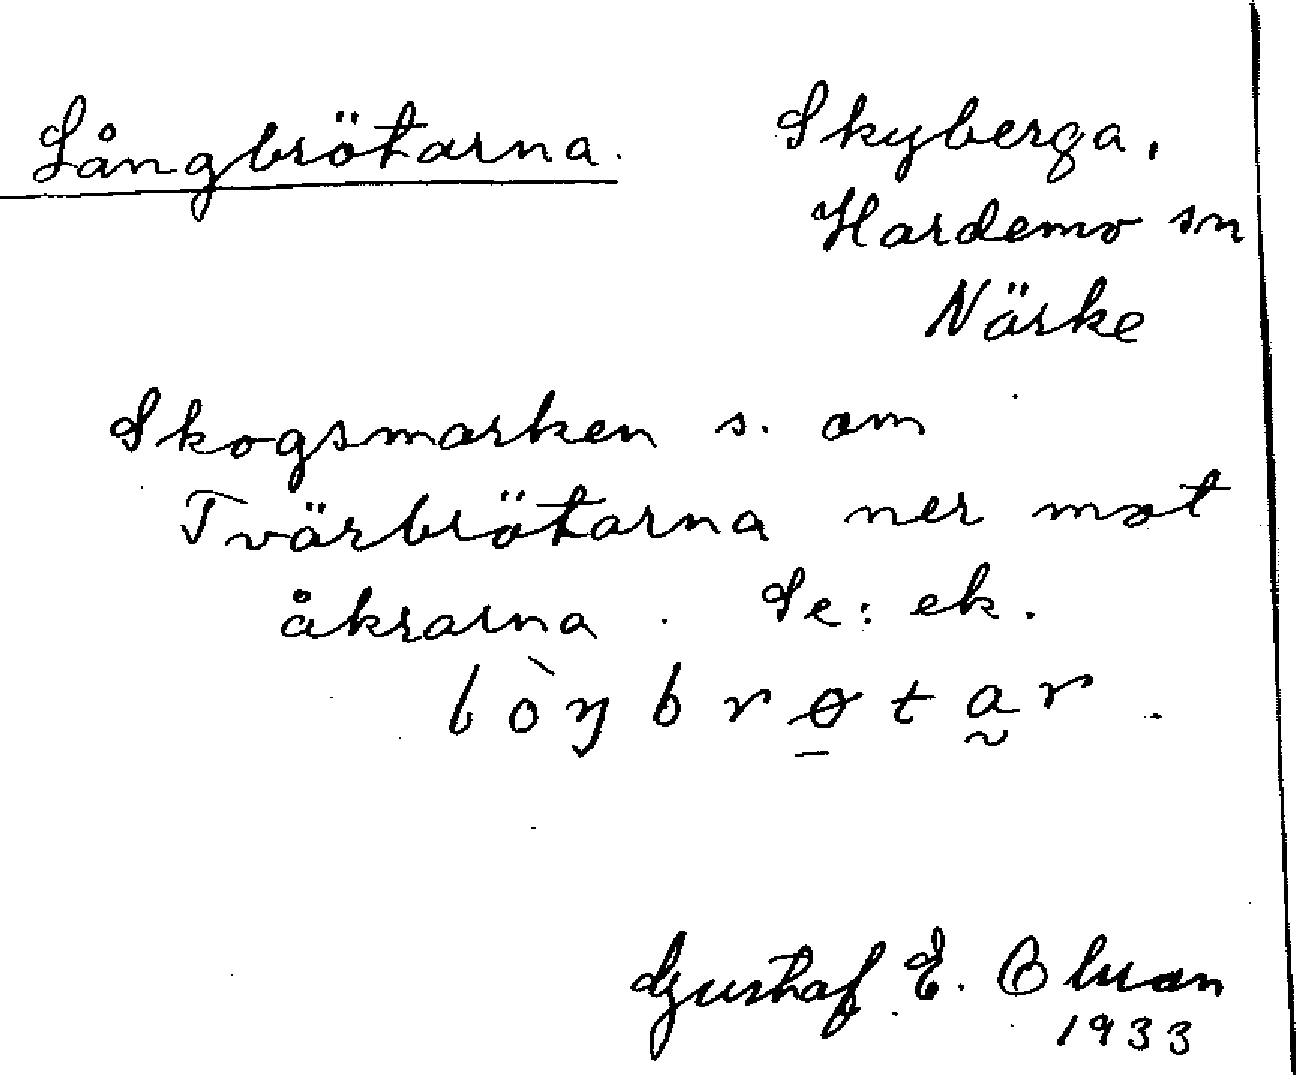 Långbrötarna.
Skyberga,
Hardemo sn
Närke
Skogsmarken s. om
Tvärbrötarna ner mot
åkrarna. Se: ek.
lòŋbrø̱ta̰r.
Gustaf E.
1933